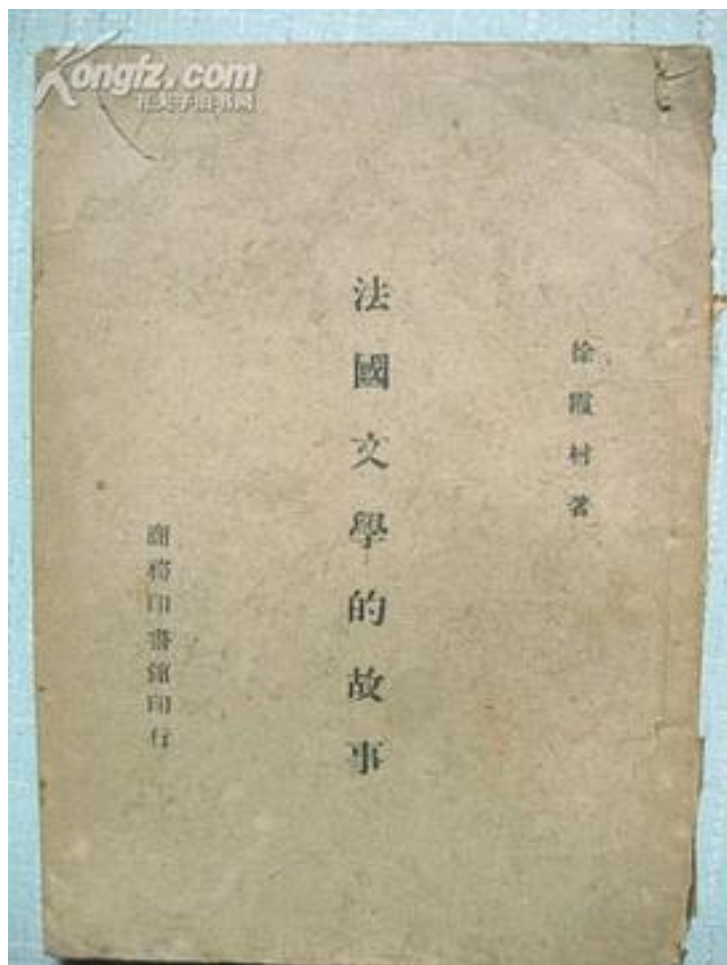 Kongfz.com
孔夫子旧书网
徐霞村著
法國文學的故事
商務印書館印行